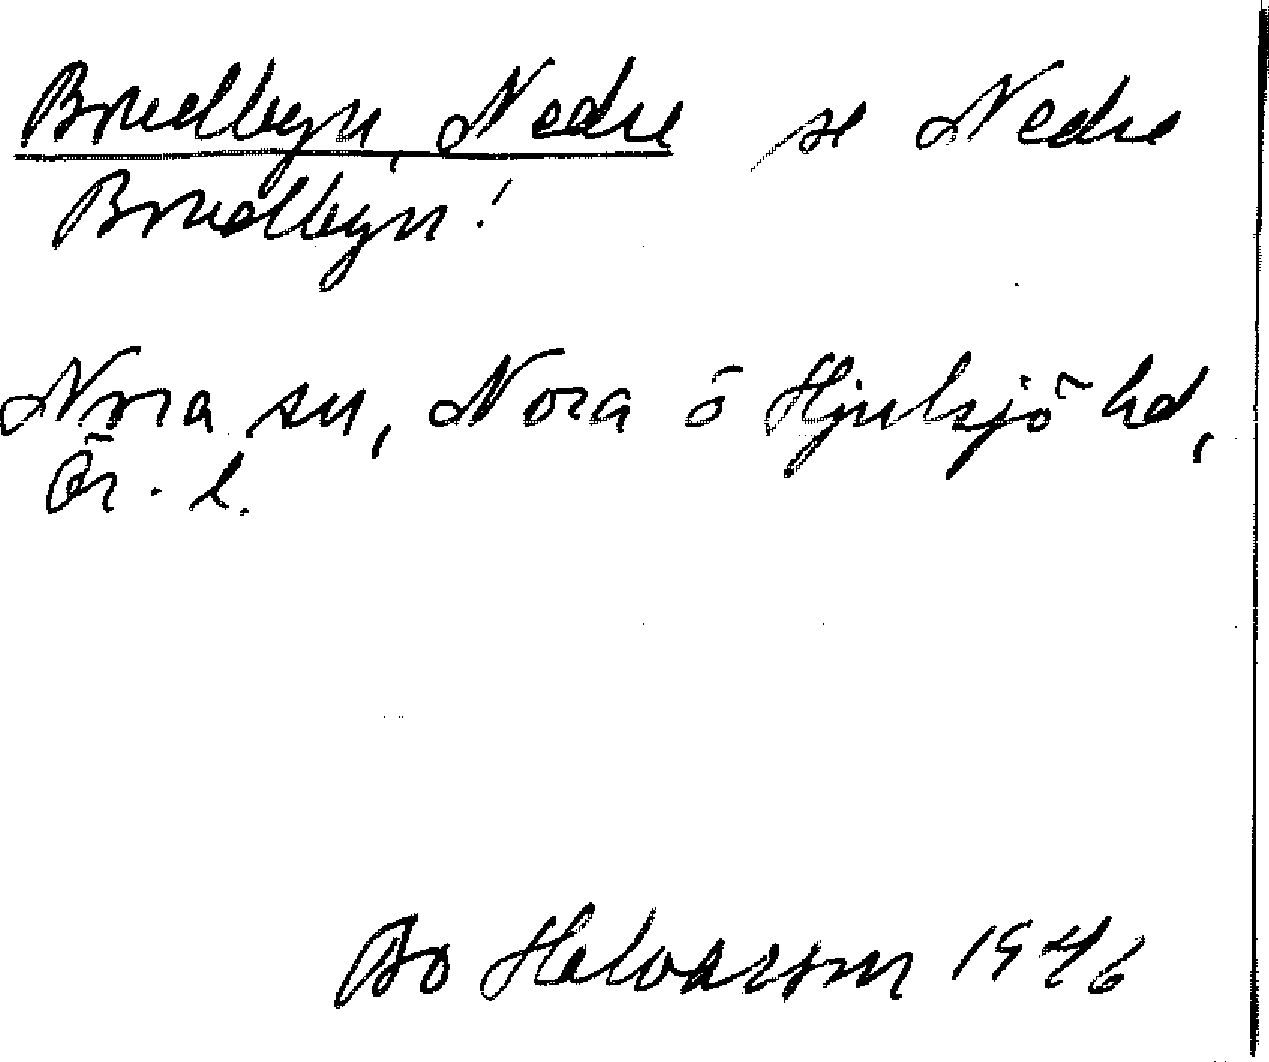 Bredbyn, Nedre se Nedre
Bredbyn!
Nora sn, Nora o Hjulsjö hd,
Ör. l.
Bo 1946